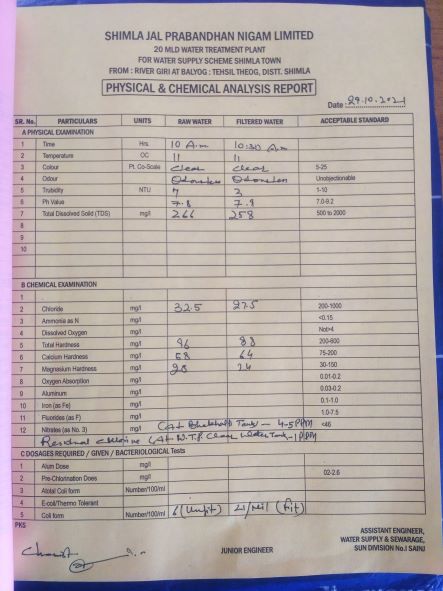 SHIMLA JAL PRABANDHAN NIGAM LIMITED
20 MLD WATER TREATMENT PLANT
FOR WATER SUPPLY SCHEME SHIMLA TOWN
FROM : RIVER GIRI AT BALYOG : TEHSIL THEOG, DISTT. SHIMLA
PHYSICAL & CHEMICAL ANALYSIS REPORT
Date : 29.10.2021
SR. No. PARTICULARS UNITS RAW WATER FILTERED WATER ACCEPTABLE STANDARD
A PHYSICAL EXAMINATION
1 Time Hrs. 10 A.m 10:30 A.m
2 Temperature OC 11 11
3 Colour Pt. Co-Scale clear clear 5-25
4 Odour Odourless Odourless Unobjectionable
5 Trubidity NTU 7 3 1-10
6 Ph Value 7.8 7.8 7.0-9.2
7 Total Dissolved Solid (TDS) mg/l 266 258 500 to 2000
8
9
10
B CHEMICAL EXAMINATION
1
2 Chloride mg/l 32.5 27.5 200-1000
3 Ammonia as N mg/l <0.15
4 Dissolved Oxygen mg/l Not>4
5 Total Hardness mg/l 96 88 200-600
6 Calcium Hardness mg/l 68 64 75-200
7 Magnesium Hardness mg/l 28 24 30-150
8 Oxygen Absorption mg/l 0.01-0.2
9 Aluminum mg/l 0.03-0.2
10 Iron (as Fe) mg/l 0.1-1.0
11 Fluorides (as F) mg/l 1.0-7.5
12 Nitrates (as No. 3) mg/l (At Tank - 4-5 PPM <45
Residual chlorine (At W.T.P Clear Water Tank - 1 PPM
C DOSAGES REQUIRED / GIVEN / BACTERIOLOGICAL Tests
1 Alum Dose mg/l
2 Pre-Chlorination Does mg/l 02-2.6
3 Atotal Coli form Number/100/ml
4 E-coli/Thermo Tolerant
5 Coli form Number/100/ml 6 (Unfit) (fit)
PKS
JUNIOR ENGINEER
ASSISTANT ENGINEER,
WATER SUPPLY & SEWARAGE,
SUN DIVISION No.I SAINJ